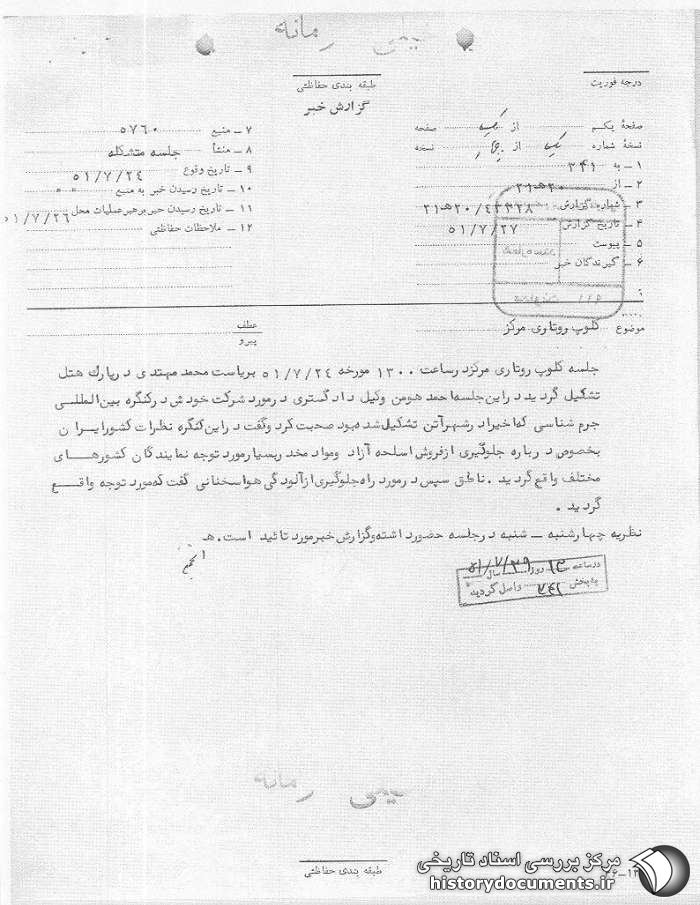 خیلی محرمانه
درجه فوریت
طبقه بندی حفاظتی
گزارش خبر
صفحهٔ یکم از یک صفحه
نسخهٔ شماره یک از چهار نسخه
۱ ــ به ۳۴۱
۲ ــ از ۲۰هـ۲۱
۳ ــ شماره گزارش ۲۰/۴۲۳۲۸هـ۲۱
۴ ــ تاریخ گزارش ۵۱/۷/۲۷
۵ ــ پیوست
۶ ــ گیرندگان خبر
۷ ــ منبع ۵۷۶۰
۸ ــ منشأ جلسه متشکله
۹ ــ تاریخ وقوع ۵۱/۷/۲۴
۱۰ ــ تاریخ رسیدن خبر به منبع " "
۱۱ ــ تاریخ رسیدن خبر برهبر عملیات محل ۵۱/۷/۲۶
۱۲ ــ ملاحظات حفاظتی
موضوع کلوپ روتاری مرکز
عطف
پیرو
جلسه کلوپ روتاری مرکز در ساعت ۱۳۰۰ مورخه ۵۱/۷/۲۴ بریاست محمد مهتدی در پارك هتل
تشکیل گردید در این جلسه احمد هومن وکیل دادگستری در مورد شرکت خودش در کنگره بین‌المللی
جرم شناسی که اخیرا در شهر آتن تشکیل شده بود صحبت کرد و گفت در این کنگره نظرات کشور ایران
بخصوص در باره جلوگیری از فروش اسلحه آزاد و مواد مخدر بسیار مورد توجه نمایندگان کشورهای
مختلف واقع گردید . ناطق سپس در مورد راه جلوگیری از آلودگی هوا سخنانی گفت که مورد توجه واقع
گردید .
نظریه چهارشنبه ــ شنبه در جلسه حضور داشته و گزارش خبر مورد تائید است. هـ
در ساعت ۱۳ روز ۵۱/۷/۲۹ سال
به بخش ۳۴۱ واصل گردید
خیلی محرمانه
طبقه بندی حفاظتی
مرکز بررسی اسناد تاریخی
historydocuments.ir